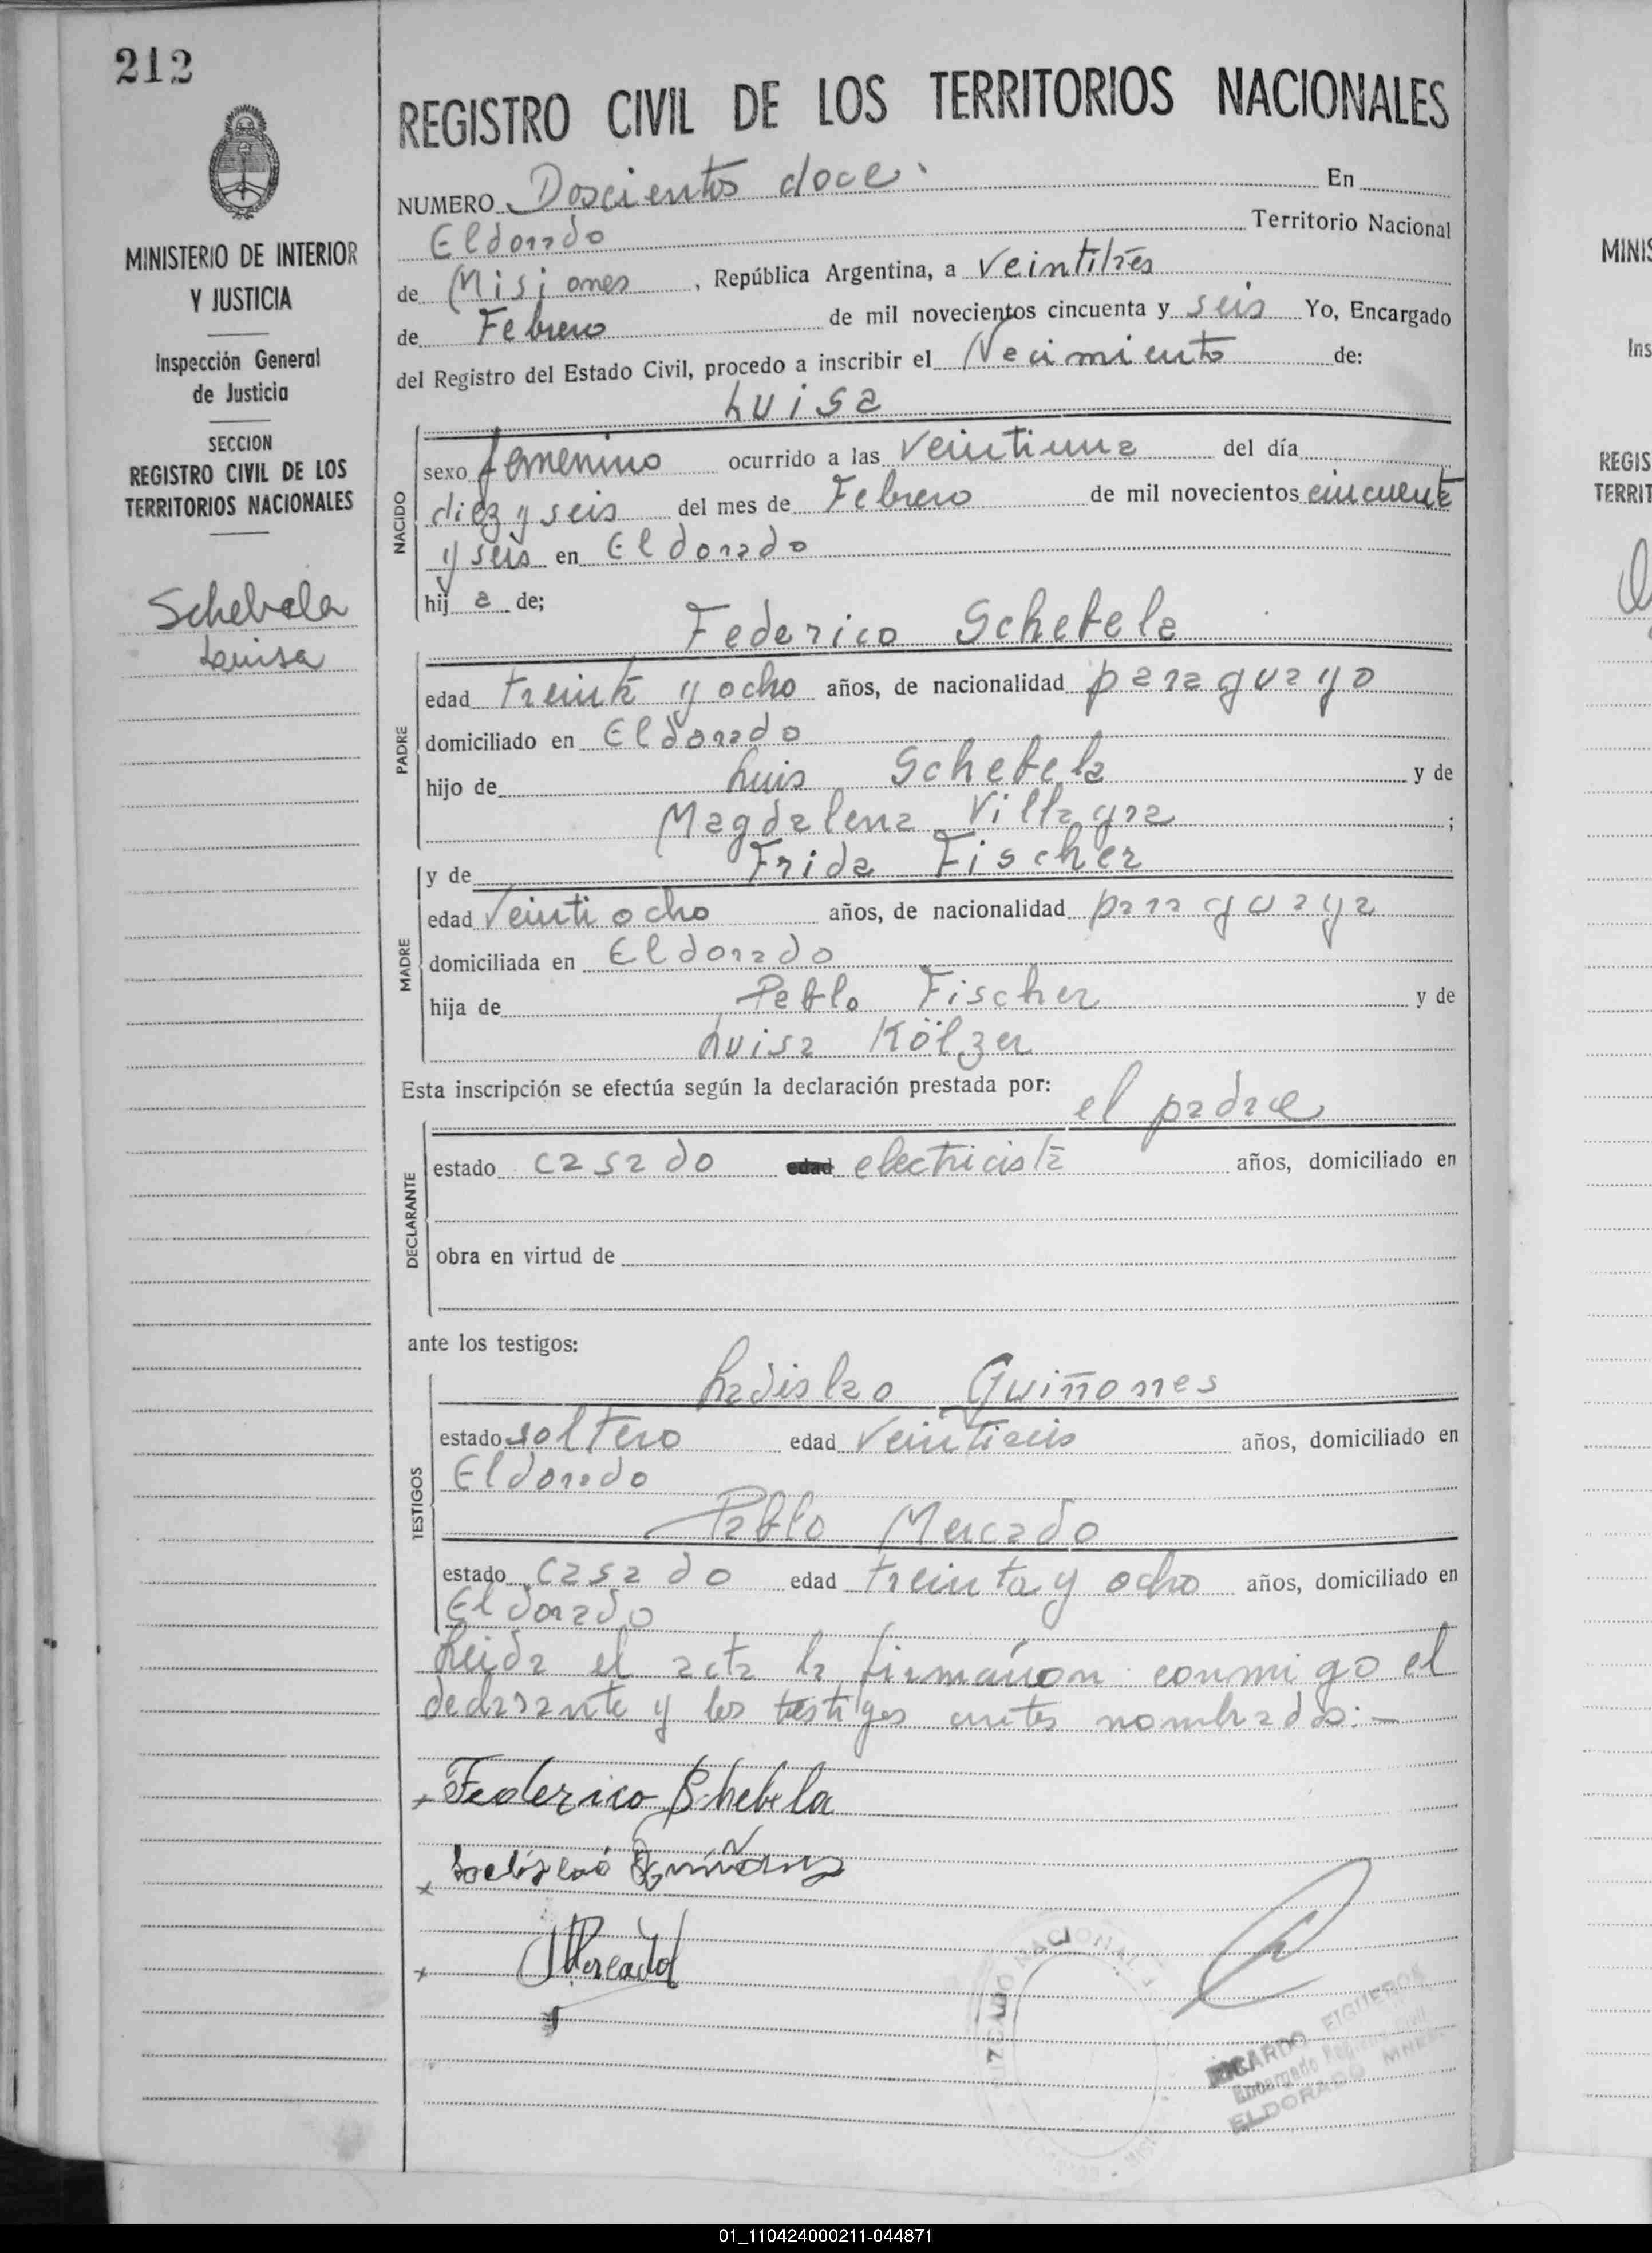 212
MINISTERIO DE INTERIOR
Y JUSTICIA
Inspección General
de Justicia
SECCION
REGISTRO CIVIL DE LOS
TERRITORIOS NACIONALES
Schebela
Luisa
REGISTRO CIVIL DE LOS TERRITORIOS NACIONALES
NUMERO Doscientos doce. En
Eldorado Territorio Nacional
de Misiones, República Argentina, a Veintitrés
de Febrero de mil novecientos cincuenta y seis Yo, Encargado
del Registro del Estado Civil, procedo a inscribir el Necimiento de:
Luisa
NACIDO
sexo femenino ocurrido a las Veintiuna del día
diez y seis del mes de Febrero de mil novecientos cincuenta
y seis en Eldorado
hij a de;
Federico Schebela
PADRE
edad treinta y ocho años, de nacionalidad paraguayo
domiciliado en Eldorado
hijo de Luis Schebela y de
Magdalena Villagra ;
MADRE
y de Frida Fischer
edad Veintiocho años, de nacionalidad paraguaya
domiciliada en Eldorado
hija de Pablo Fischer y de
Luisa Kölzer
Esta inscripción se efectúa según la declaración prestada por: el padre
DECLARANTE
estado casado edad electricista años, domiciliado en
obra en virtud de
ante los testigos:
TESTIGOS
Ladislao Quiñones
estado soltero edad Veintiseis años, domiciliado en
Eldorado
Pablo Mercado
estado casado edad treinta y ocho años, domiciliado en
Eldorado
Leida el acta la firmaron conmigo el
declarante y los testigos antes nombrados:-
x Federico Schebela
x Ladislao Quiñones
x Mercado
NACIONAL
RICARDO FIGUEROS
Encargado Registro Civil
ELDORADO MNES.
MINIS
Ins
REGIS
TERRIT
01_110424000211-044871